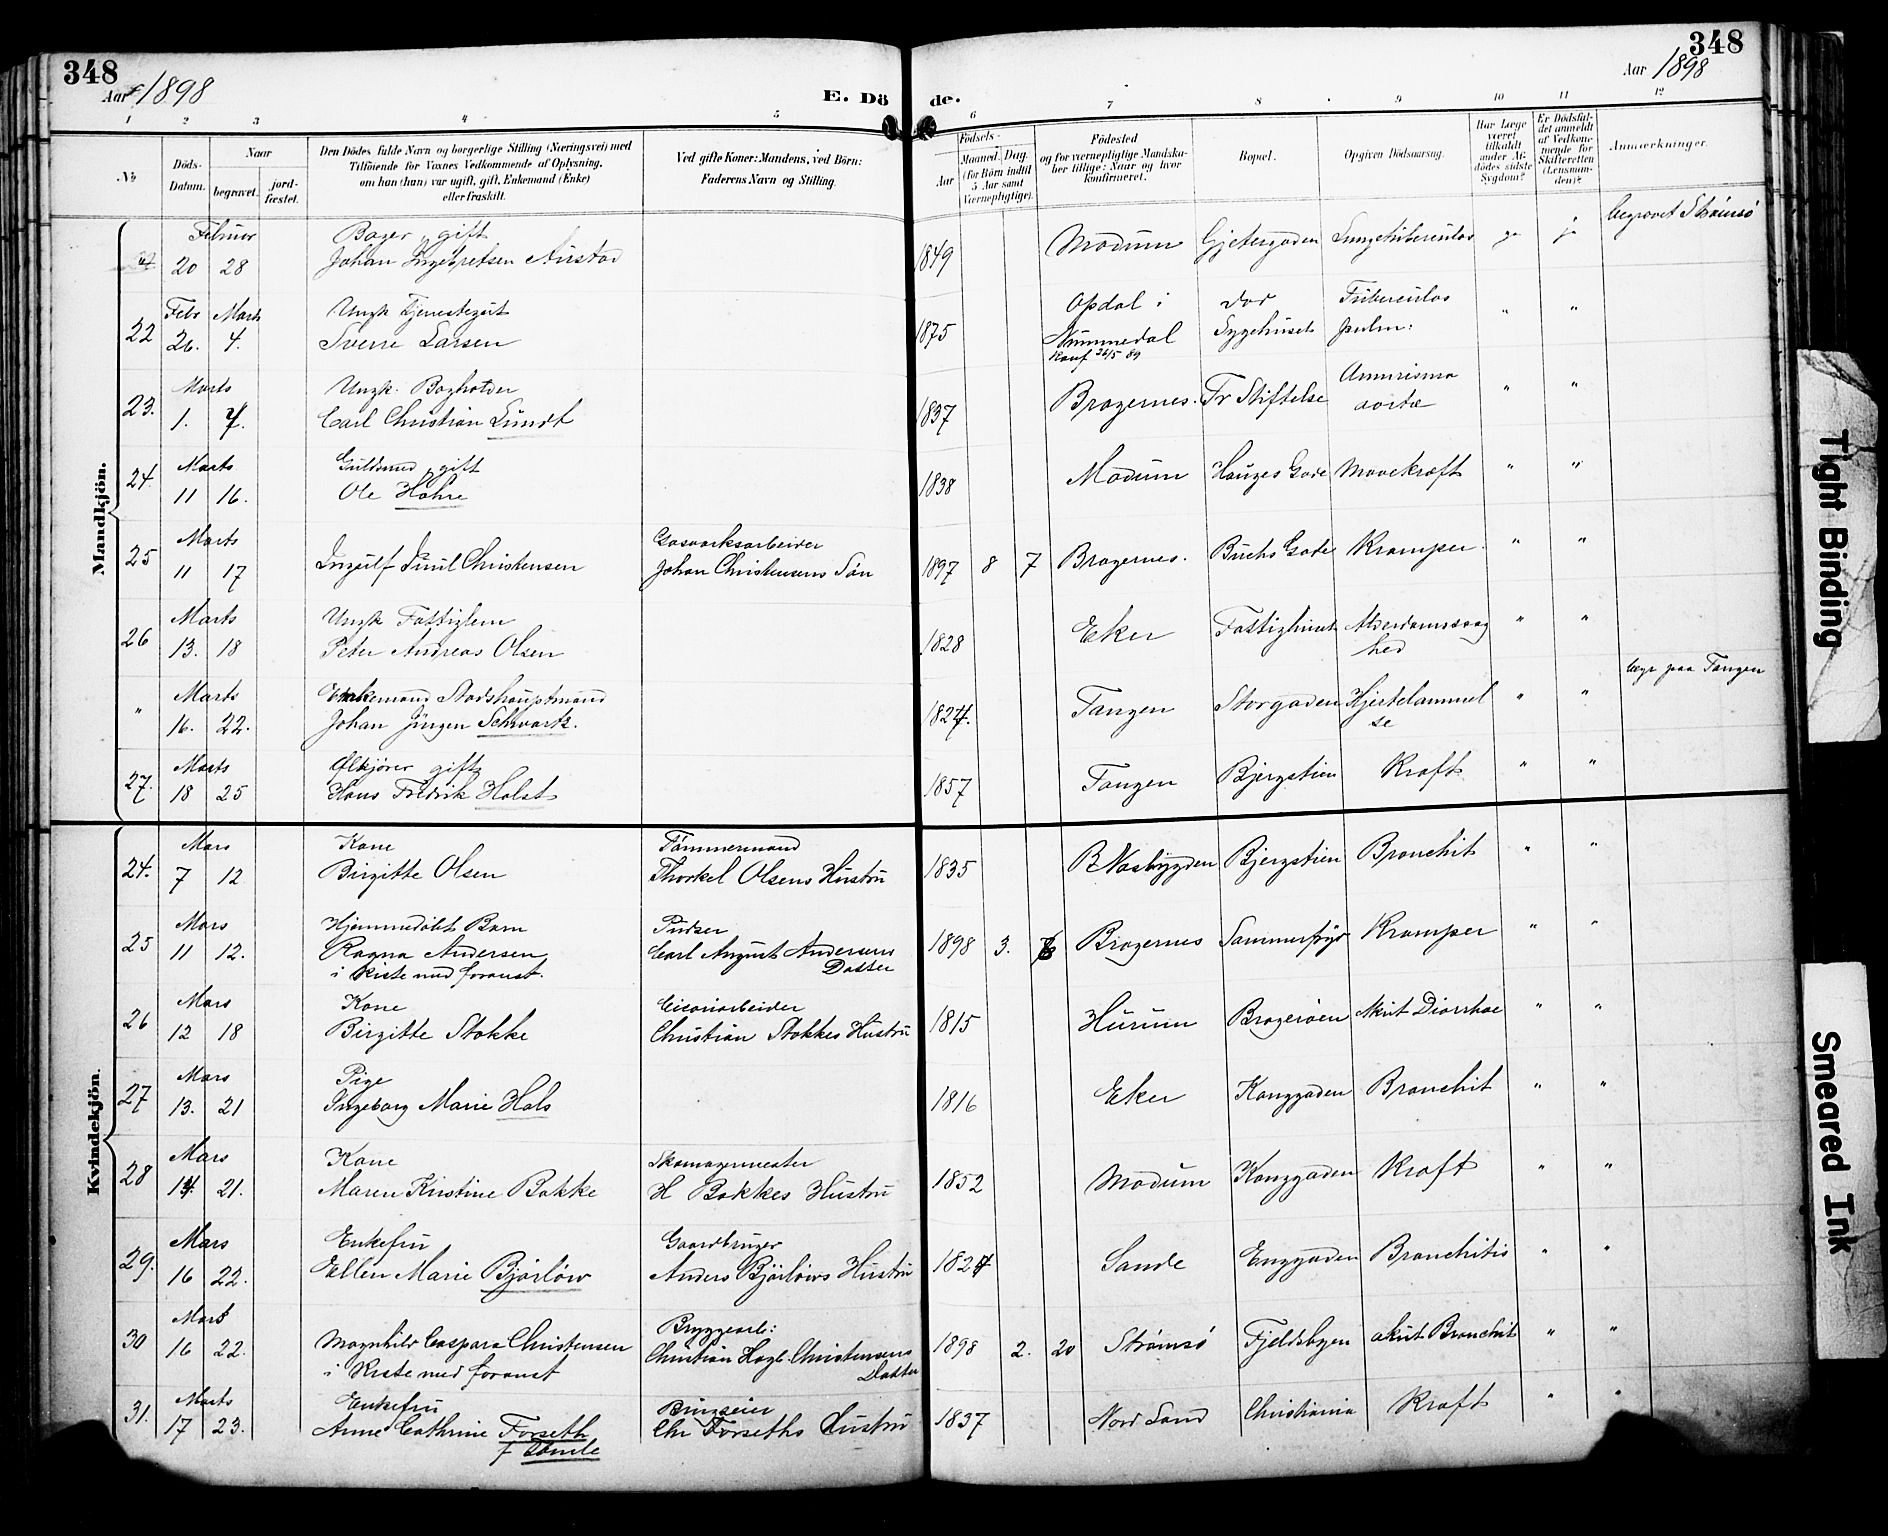 348
Aar 1898
E. Dö
de.
348
Aar 1898
1 2 3 4 5 6 7 8 9 10 11 12
No
Döds-
Datum.
Naar
begravet.
jord-
fæstet.
Den Dödes fulde Navn og borgerlige Stilling (Næringsvei) med
Tilföiende for Voxnes Vedkommende af Oplysning,
om han (hun) var ugift, gift, Enkemand (Enke)
eller fraskilt.
Ved gifte Koner: Mandens, ved Börn:
Faderens Navn og Stilling.
Födsels-
Aar
Maaned. Dag.
(for Börn indtil
5 Aar samt
Værnepligtige).
Födested
og for værnepligtige Mandska-
ber tillige: Naar og hvor
konfirmeret.
Bopæl.
Opgiven Dödsaarsag.
Har Læge
været
tilkaldt
under Af-
dödes sidste
Sygdom?
Er Dödsfal-
det anmeldt
af Vedkom-
mende for
Skifteretten
(Lensman-
den)?
Anmærkninger.
Mandkjön.
Februar Bager, gift begravet Strømsø
20 28 Johan Ingebretsen Aurstad 1849 Modum Gjetergaden Lungetuberculos ja ja
Febr Marts Ungk Tjenestegut Opdal i Tuberculos
22 26. 4. Sverre Larsen 1875 Nummedal Sygehuset pulm: " "
Konf 26/5 89
Marts Ungk. Bogholder
23. 1. 7. Carl Christian Lundt 1837 Bragernes. Fr Stiftelse aortæ " "
Marts Guldsmed, gift
24 11 16. Ole Hohre 1838 Modum Hauges Gade Mavekræft " "
Marts Gasværksarbeider
25 11 17 Ingulf Juul Christensen Johan Christensens Søn 1897 8 7 Bragernes. Buchs Gade Kramper. " "
Marts Ungk Fattiglem
26 13. 18 Peter Andreas Olsen 1828 Eker Fattighuset Alderdomssvag
hed " "
" Marts Enkemand Stadshauptmand begr paa Tangen
16. 22. Johan Jürgen Schwartz. 1824. Tangen Storgaden Hjertelammel
se " "
Marts Ølkjører gift
27. 18 25 Hans Fredrik Holst 1857 Tangen Bjergstien Kræft " "
Kvindekjön.
Mars Kone Tømmermand
24. 7 12 Birgitte Olsen Thorkel Olsens Hustru 1835 Bjergstien Bronchit " "
Mars Hjemmedøbt Barn Pudser
25 11 12. Ragna Andersen Carl August Andersens 1898 3. Bragernes Sommerfryd Kramper " "
i Kiste med foranst. Datter
Mars Kone
26 12 18 Birgitte Stokke Christian Stokkes Hustru 1815 Hurum Bragerøen Akut Diarrhoe " "
Mars Pige
27 13. 21 Ingeborg Marie Hals 1816 Eker Konggaden Bronchit " "
Mars Kone Skomagermester
28 14. 21. Maren Kristine Bakke H Bakkes Hustru 1852 Modum Konggaden Kræft " "
Mars Enkefru Gaardbruger
29. 16 22. Ellen Marie Bjørløw Anders Bjørløws Hustru 1824 Sande Enggaden Bronchitis " "
Mars Bryggearb:
30 16 22. Magnhild Caspara Christensen Christian Hagb. Christensens 1898 2. 20 Strømsø Fjeldsbyen akut Bronchit " "
i Kiste med foranst Datter
Marts Enkefru
31. 17 23. Anne Cathrine Forseth Chr Forseths Hustru 1837 Nord Land Christiania Kræft " "
Tight Binding
Smeared Ink